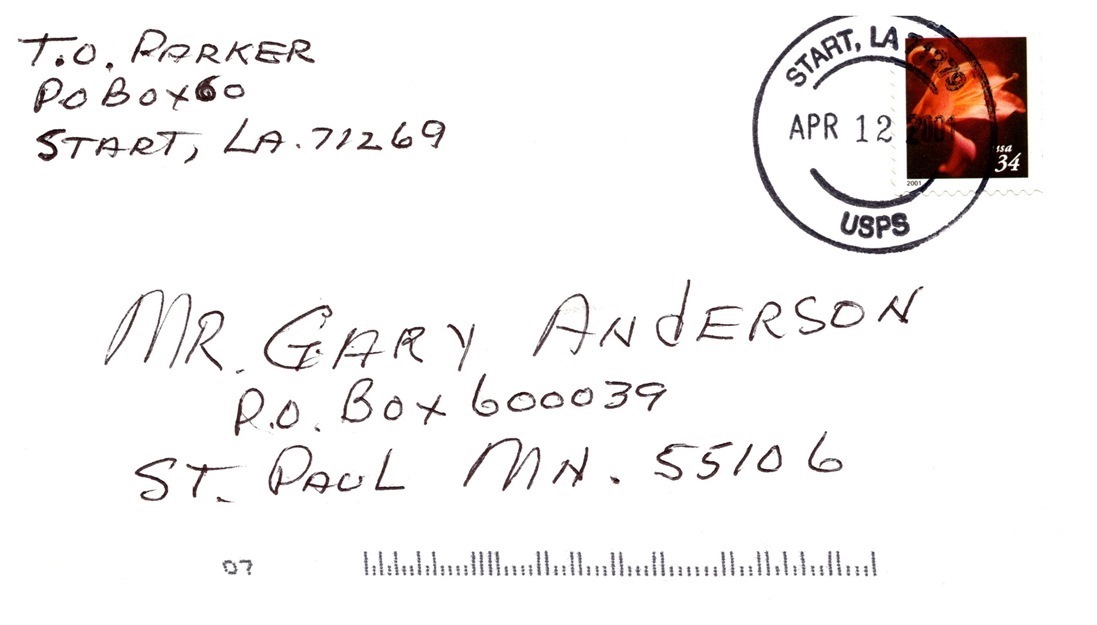 T.O. PARKER
PO BOX 60
START, LA. 71269
START, LA 71279
APR 12 2001
USPS
usa
34
2001
MR. GARY ANDERSON
P.O. BOX 600039
ST. PAUL MN. 55106
07